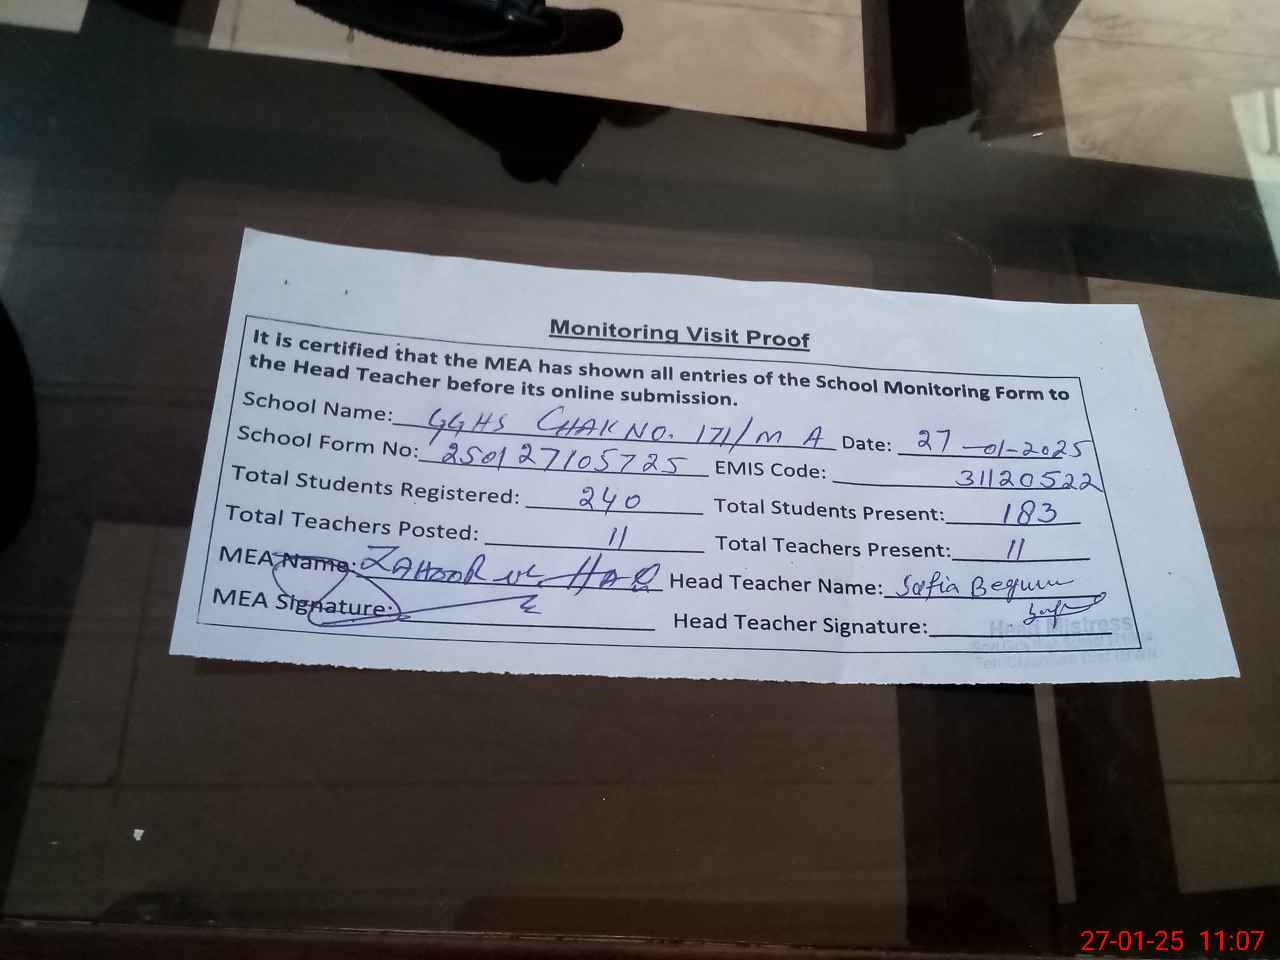 Monitoring Visit Proof
It is certified that the MEA has shown all entries of the School Monitoring Form to
the Head Teacher before its online submission.
School Name: GGHS CHAK NO. 171/M A Date: 27-01-2025
School Form No: 250127105725 EMIS Code: 31120522
Total Students Registered: 240 Total Students Present: 183
Total Teachers Posted: 11 Total Teachers Present: 11
MEA Name: ZAHOOR UL HAQ Head Teacher Name: Safia Begum
MEA Signature: Head Teacher Signature:
Head Mistress
27-01-25 11:07